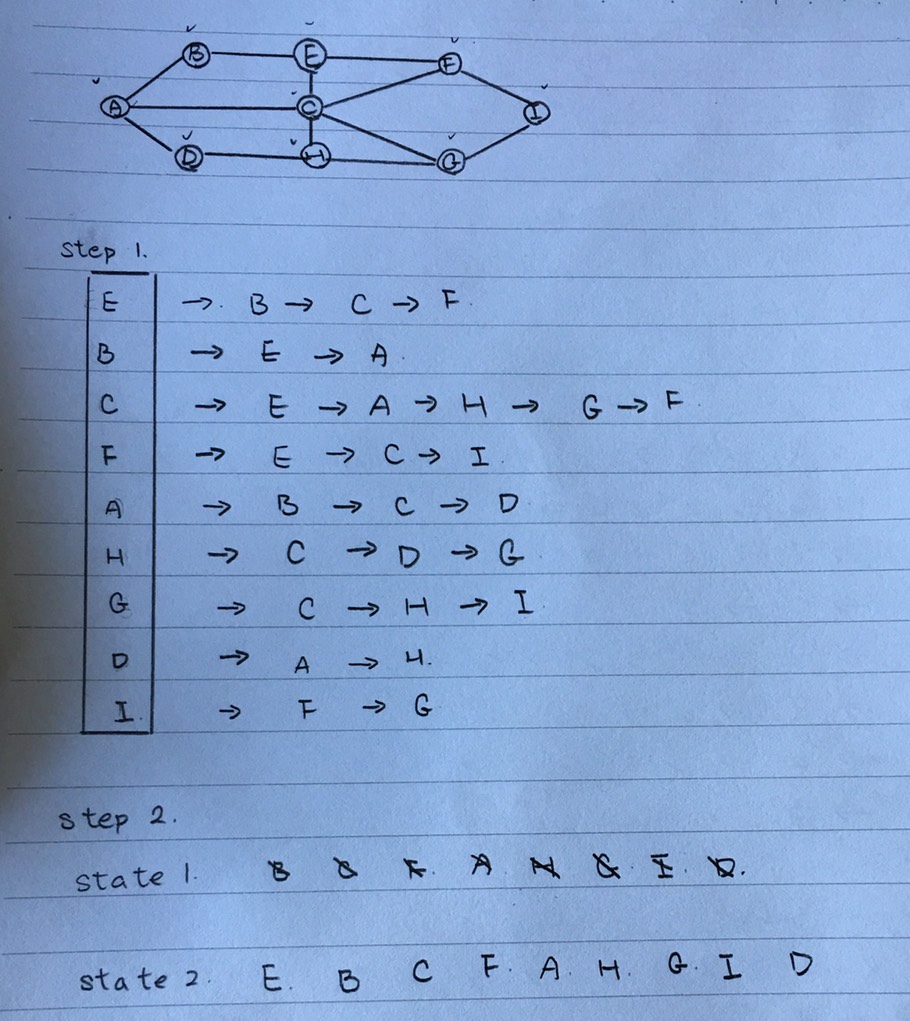 B E F
A C I
D H G
step 1.
E →. B → C → F.
B → E → A.
C → E → A → H → G → F.
F → E → C → I.
A → B → C → D
H → C → D → G
G → C → H → I.
D → A → H.
I. → F → G
step 2.
state 1. B C F. A H G I. D.
state 2. E. B C F. A. H. G. I D